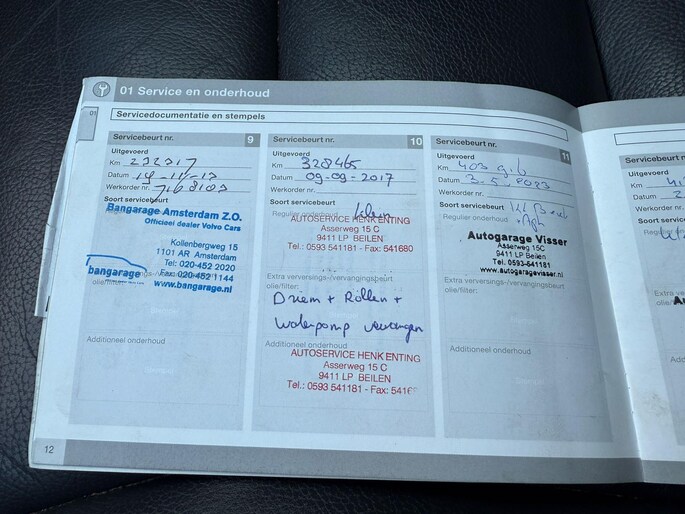 01 Service en onderhoud
01
Servicedocumentatie en stempels
Servicebeurt nr. 9
Uitgevoerd
Km
Datum
Werkorder nr.
Soort servicebeurt
Regulier onderhoud
Bangarage Amsterdam Z.O.
Officieel dealer Volvo Cars
Kollenbergweg 15
1101 AR Amsterdam
Tel: 020-452 2020
Fax: 020-452 1144
www.bangarage.nl
bangarage
olie/filter:
Additioneel onderhoud
Servicebeurt nr. 10
Uitgevoerd
Km 328465
Datum 09-09-2017
Werkorder nr.
Soort servicebeurt Klein
Regulier onderhoud
AUTOSERVICE HENK ENTING
Asserweg 15 C
9411 LP BEILEN
Tel.: 0593 541181 - Fax: 541680
Extra verversings-/vervangingsbeurt
olie/filter:
Driem + Rollen +
Waterpomp vervangen
Additioneel onderhoud
AUTOSERVICE HENK ENTING
Asserweg 15 C
9411 LP BEILEN
Tel.: 0593 541181 - Fax: 5416
Servicebeurt nr. 11
Uitgevoerd
Km
Datum 3-5-2023
Werkorder nr.
Soort servicebeurt
Regulier onderhoud
Autogarage Visser
Asserweg 15C
9411 LP Beilen
Tel. 0593-541181
www.autogaragevisser.nl
Extra verversings-/vervangingsbeurt
olie/filter:
Additioneel onderhoud
12
Servicebeurt n
Uitgevoerd
Km
Datum
Werkorder nr.
Soort servic
Regulier on
Extra ve
olie/filte
Additio